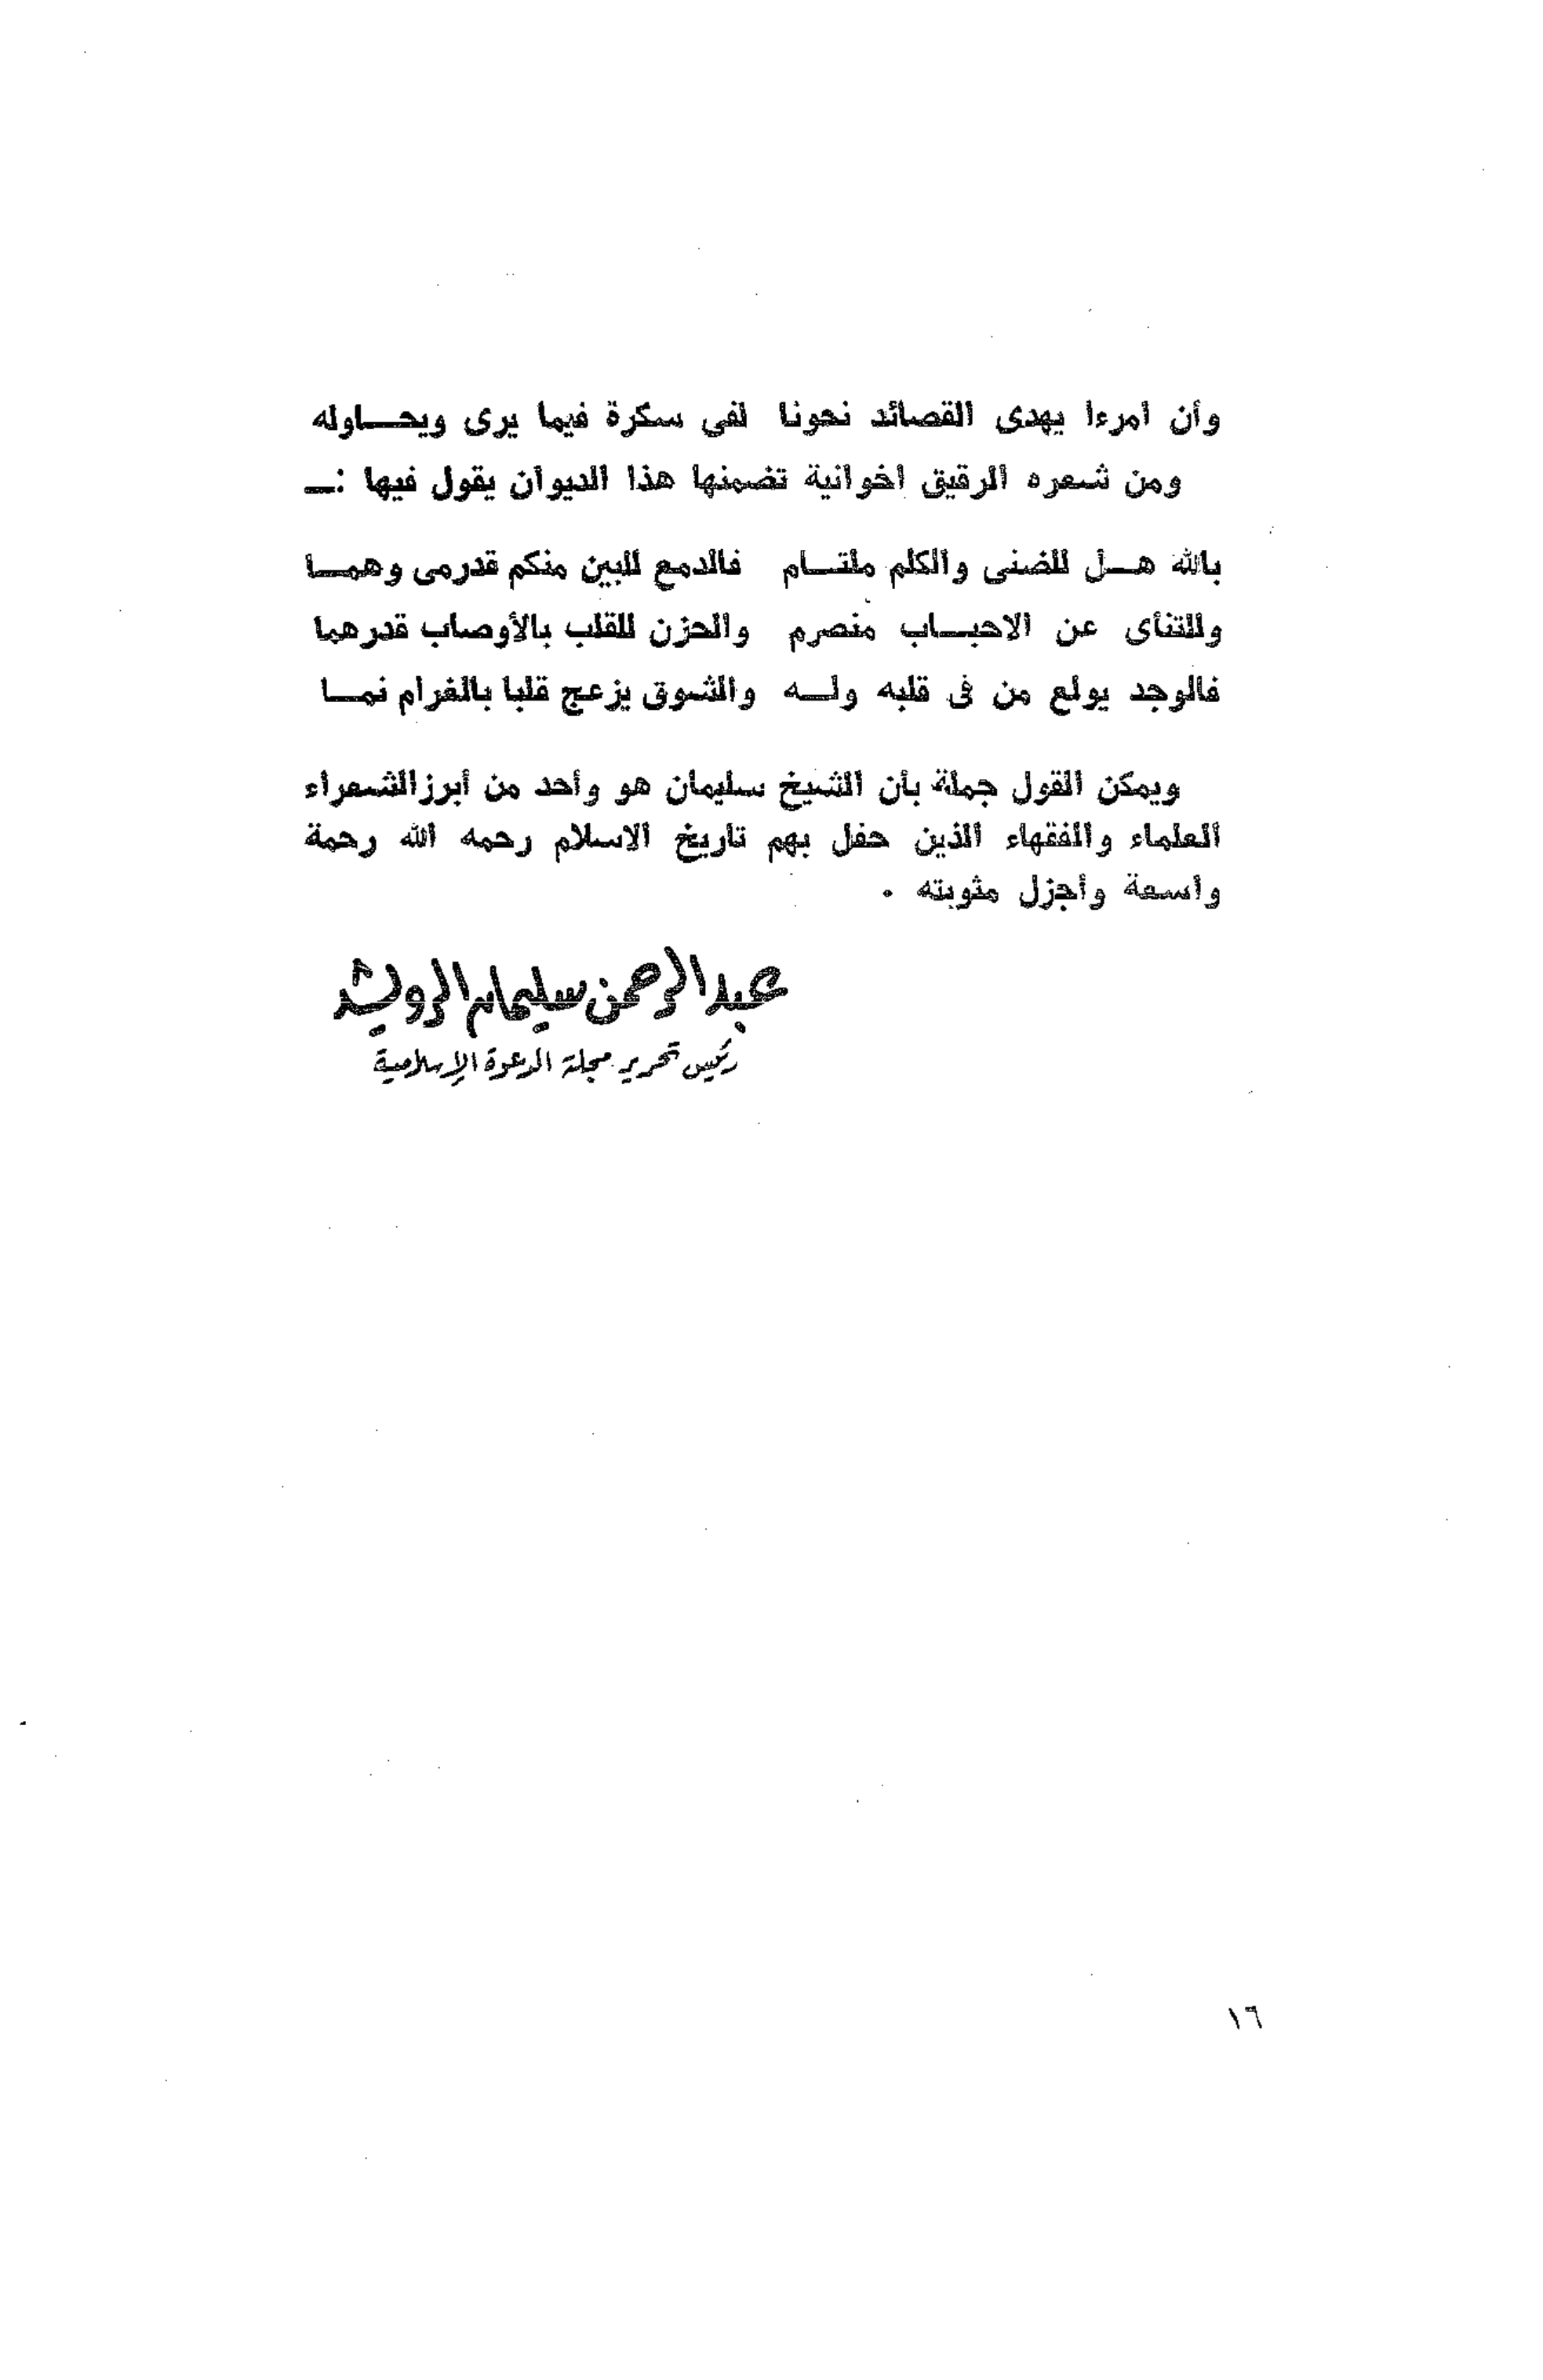 وأن امرءا يهدى القصائد نحونا لفى سكرة فيما يرى ويحـــاوله
ومن شعره الرقيق اخوانية تضمنها هذا الديوان يقول فيها :ــ
بالله هـــل للضنى والكلم ملتـــام فالدمع للبين منكم قدرمى وهمـــا
وللتنأى عن الاحبـــاب منصرم والحزن للقلب بالأوصاب قدرهما
فالوجد يولع من فى قلبه ولـــه والشوق يزعج قلبا بالغرام نمـــا
ويمكن القول جملة بأن الشيخ سليمان هو واحد من أبرزالشعراء
العلماء والفقهاء الذين حفل بهم تاريخ الاسلام رحمه الله رحمة
واسعة وأجزل مثوبته .
عبدالرحمن سليمان الرويشد
رئيس تحرير مجلة الدعوة الإسلامية
١٦